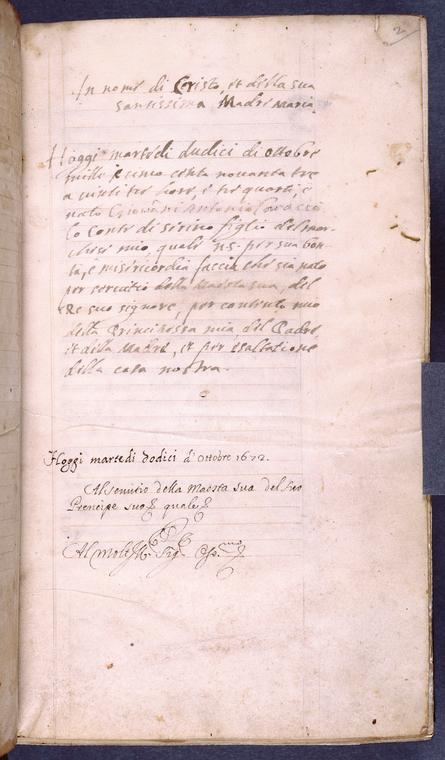 2
In nome di Cristo, et della sua
santissima Madre Maria
Hoggi martedi dudici di ottobre
mille e cinco cento novanta tre
a vinti tre hore, e tre quarti, è
nato Giovani Antonio
Conte di sirino figlio del mar-
chese mio quale N.S. per sua bon-
tà, e misericordia faccia che sia nato
per servitio della Maestà sua, del
Re suo signore, per contento mio
della Principessa mia, del Padre
et della Madre, et per esaltatione
della casa nostra.
Hoggi martedi dodici d'ottobre 1672.
Al servitio della Maestà sua del suo
Prencipe suo quale
Al molt' Ill. Sig.